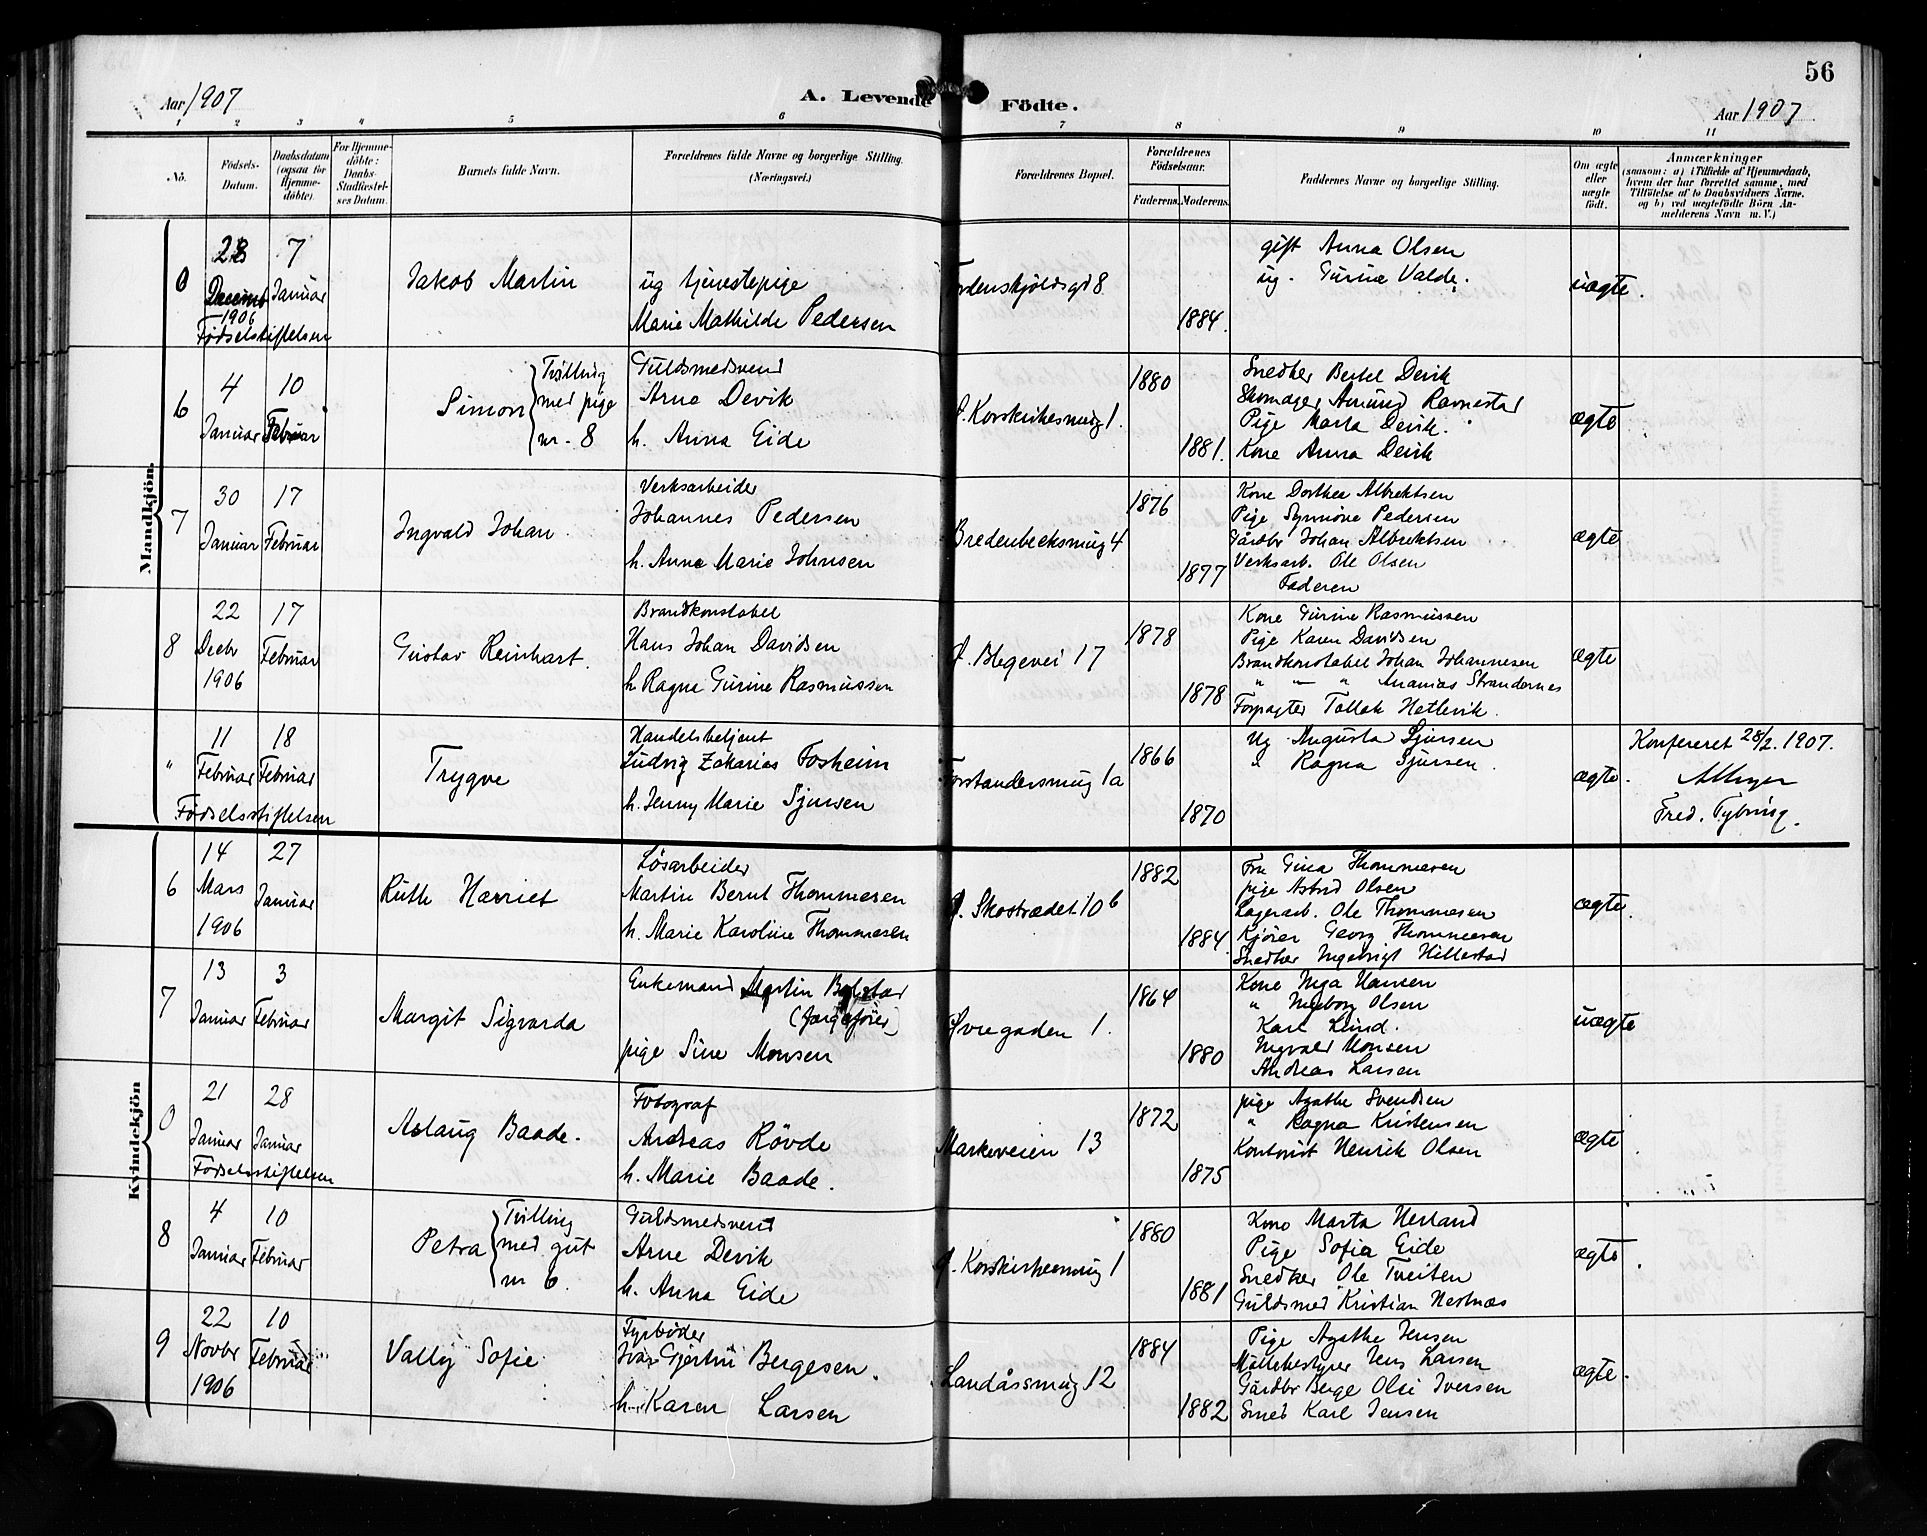 56
Aar 1907
A. Levende Födte.
Aar 1907
1 2 3 4 5 6 7 8 9 10 11
No.
Födsels-
Datum.
Daabsdatum
(ogsaa for
Hjemme-
döbte).
For Hjemme-
döbte:
Daabs-
Stadfæstel-
ses Datum.
Barnets fulde Navn.
Forældrenes fulde Navne og borgerlige Stilling.
(Næringsvei.)
Forældrenes Bopæl.
Forældrenes
Födselsaar.
Faderens. Moderens.
Faddernes Navne og borgerlige Stilling.
Om ægte
eller
uægte
födt.
Anmærkninger
(saasom: a) i Tilfælde af Hjemmedaab,
hvem der har forrettet samme, med
Tilföielse af to Daabsvidners Navne.
og b) ved uægtefödte Börn An-
melderens Navn m. V.)
Mandkjön.
0
28 7
Decemb Januar
1906
Fødselsstiftelsen
Jakob Martin
ug tjenestepige
Marie Mathilde Pedersen
Tordenskjoldsgd 8
1884.
gift Anna Olsen
ug. Gurine Valde.
uægte.
6
4 10
Januar Februar
Simon
Tvilling
med pige
nr. 8
Guldsmedsvend
Arne Devik
h. Anna Eide
Ø. Korskirkesmug 1.
1880
1881.
Snedker Bertel Devik
Skomager Amund Ravnestad
Pige Marta Devik.
Kone Anna Devik
ægte
7
30 17
Januar Februar
Ingvald Johan.
Verksarbeider
Johannes Pedersen
h. Anne Marie Johnsen
Bredenbecksmug 4
1876
1877
Kone Dorthea Albrektsen
Pige Synnöve Pedersen
Gårdbr Johan Albrektsen
Verksarb. Ole Olsen
Faderen
ægte
8
22 17
Decbr Februar
1906
Gustav Reinhart.
Brandkonstabel
Hans Johan Davidsen
h Ragna Gurine Rasmussen
Ø. Blegevei 17
1878
1878
Kone Gurine Rasmussen
Pige Karen Davidsen
Brandkonstabel Johan Johannesen
" " " Ananias Strandernes
Forpagter Tollak Hetlevik.
ægte
"
11 18
Februar Februar
Fødselsstiftelsen
Trygve
Handelsbetjent
Ludvig Zakarias Fosheim
h. Jenny Marie Sjursen
Forstandersmug 1a
1866
1870
Ug Augusta Sjursen
" Ragna Sjursen.
ægte.
Konfereret 28/2. 1907.
Fred. Tybring.
Kvindekjön
6
14 27
Mars Januar
1906
Ruth Harriet
Løsarbeider
Martin Bernt Thommesen
h. Marie Karoline Thommesen
Ø. Skostrædet 10 b
1882
1884
Fru Gina Thommesen
pige Astrid Olsen
Lagerarb. Ole Thommesen
Kjører Georg Thommesen
Snedker Ingebrigt Hillestad
ægte.
7
13 3
Januar Februar
Margit Sigvarda
Enkemand Martin Bolstad
pige Sine Monsen
Øvregaden 1.
1864
1880
Kone Inga Hansen
" Ingeborg Olsen
Karl Lund.
Ingvald Monsen
Andreas Larsen
uægte
0
21 28
Januar Januar
Fødselsstiftelsen
Aslaug Baade.
Fotograf
Andreas Rövde
h. Marie Baade.
Markeveien 13
1872
1875
pige Agathe Svendsen
" Ragna Kristensen
Kontorist Henrik Olsen
ægte
8
4 10
Januar Februar
Petra
Tvilling
med gut
nr 6.
Guldsmedsvend
Arne Devik
h. Anna Eide
Ø. Korskirkesmug 1
1880
1881
Kone Marta Herland
Pige Sofia Eide
Snedker Ole Tveiten
Guldsmed Kristian Nestnæs
ægte.
9
22 10
Novbr Februar
1906
Vally Sofie
Fyrbøder
Ivar Gjertin Bergesen.
h. Karen Larsen
Landåssmug 12
1884
1882
Pige Agathe Jensen
Møllebestyrer Jens Larsen
Gårdbr Berge Olai Iversen
Smed Karl Jensen
ægte.